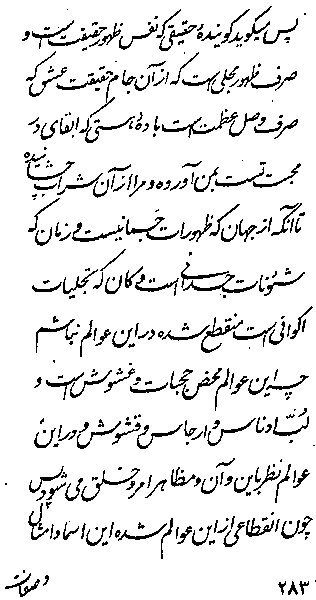 پس میگوید گویندهٔ حقیقی که نفس ظهور حقیقت است و
صرف ظهور مجلی است که از آن جام حقیقت عیش که
صرف وصل عظمت است بادهٔ هستی که ابقای در
محبت تست بمن آورده و مرا از آن شراب چشانیده
تا آنکه از جهان که ظهورات جسمانیست و زمان که
شئونات جسدانی است و مکان که تجلیات
اکوانی است منقطع شده در این عوالم نباشم
چه این عوالم محض حجبات و غشوش است و
لبّ ادناس و ارجاس و قشوش و در این
عوالم نظر باین و آن و مظاهر امر و خلق می شود پس
چون انقطاعی از این عوالم شده این اسما و امثال
و صفات
۲۸۳